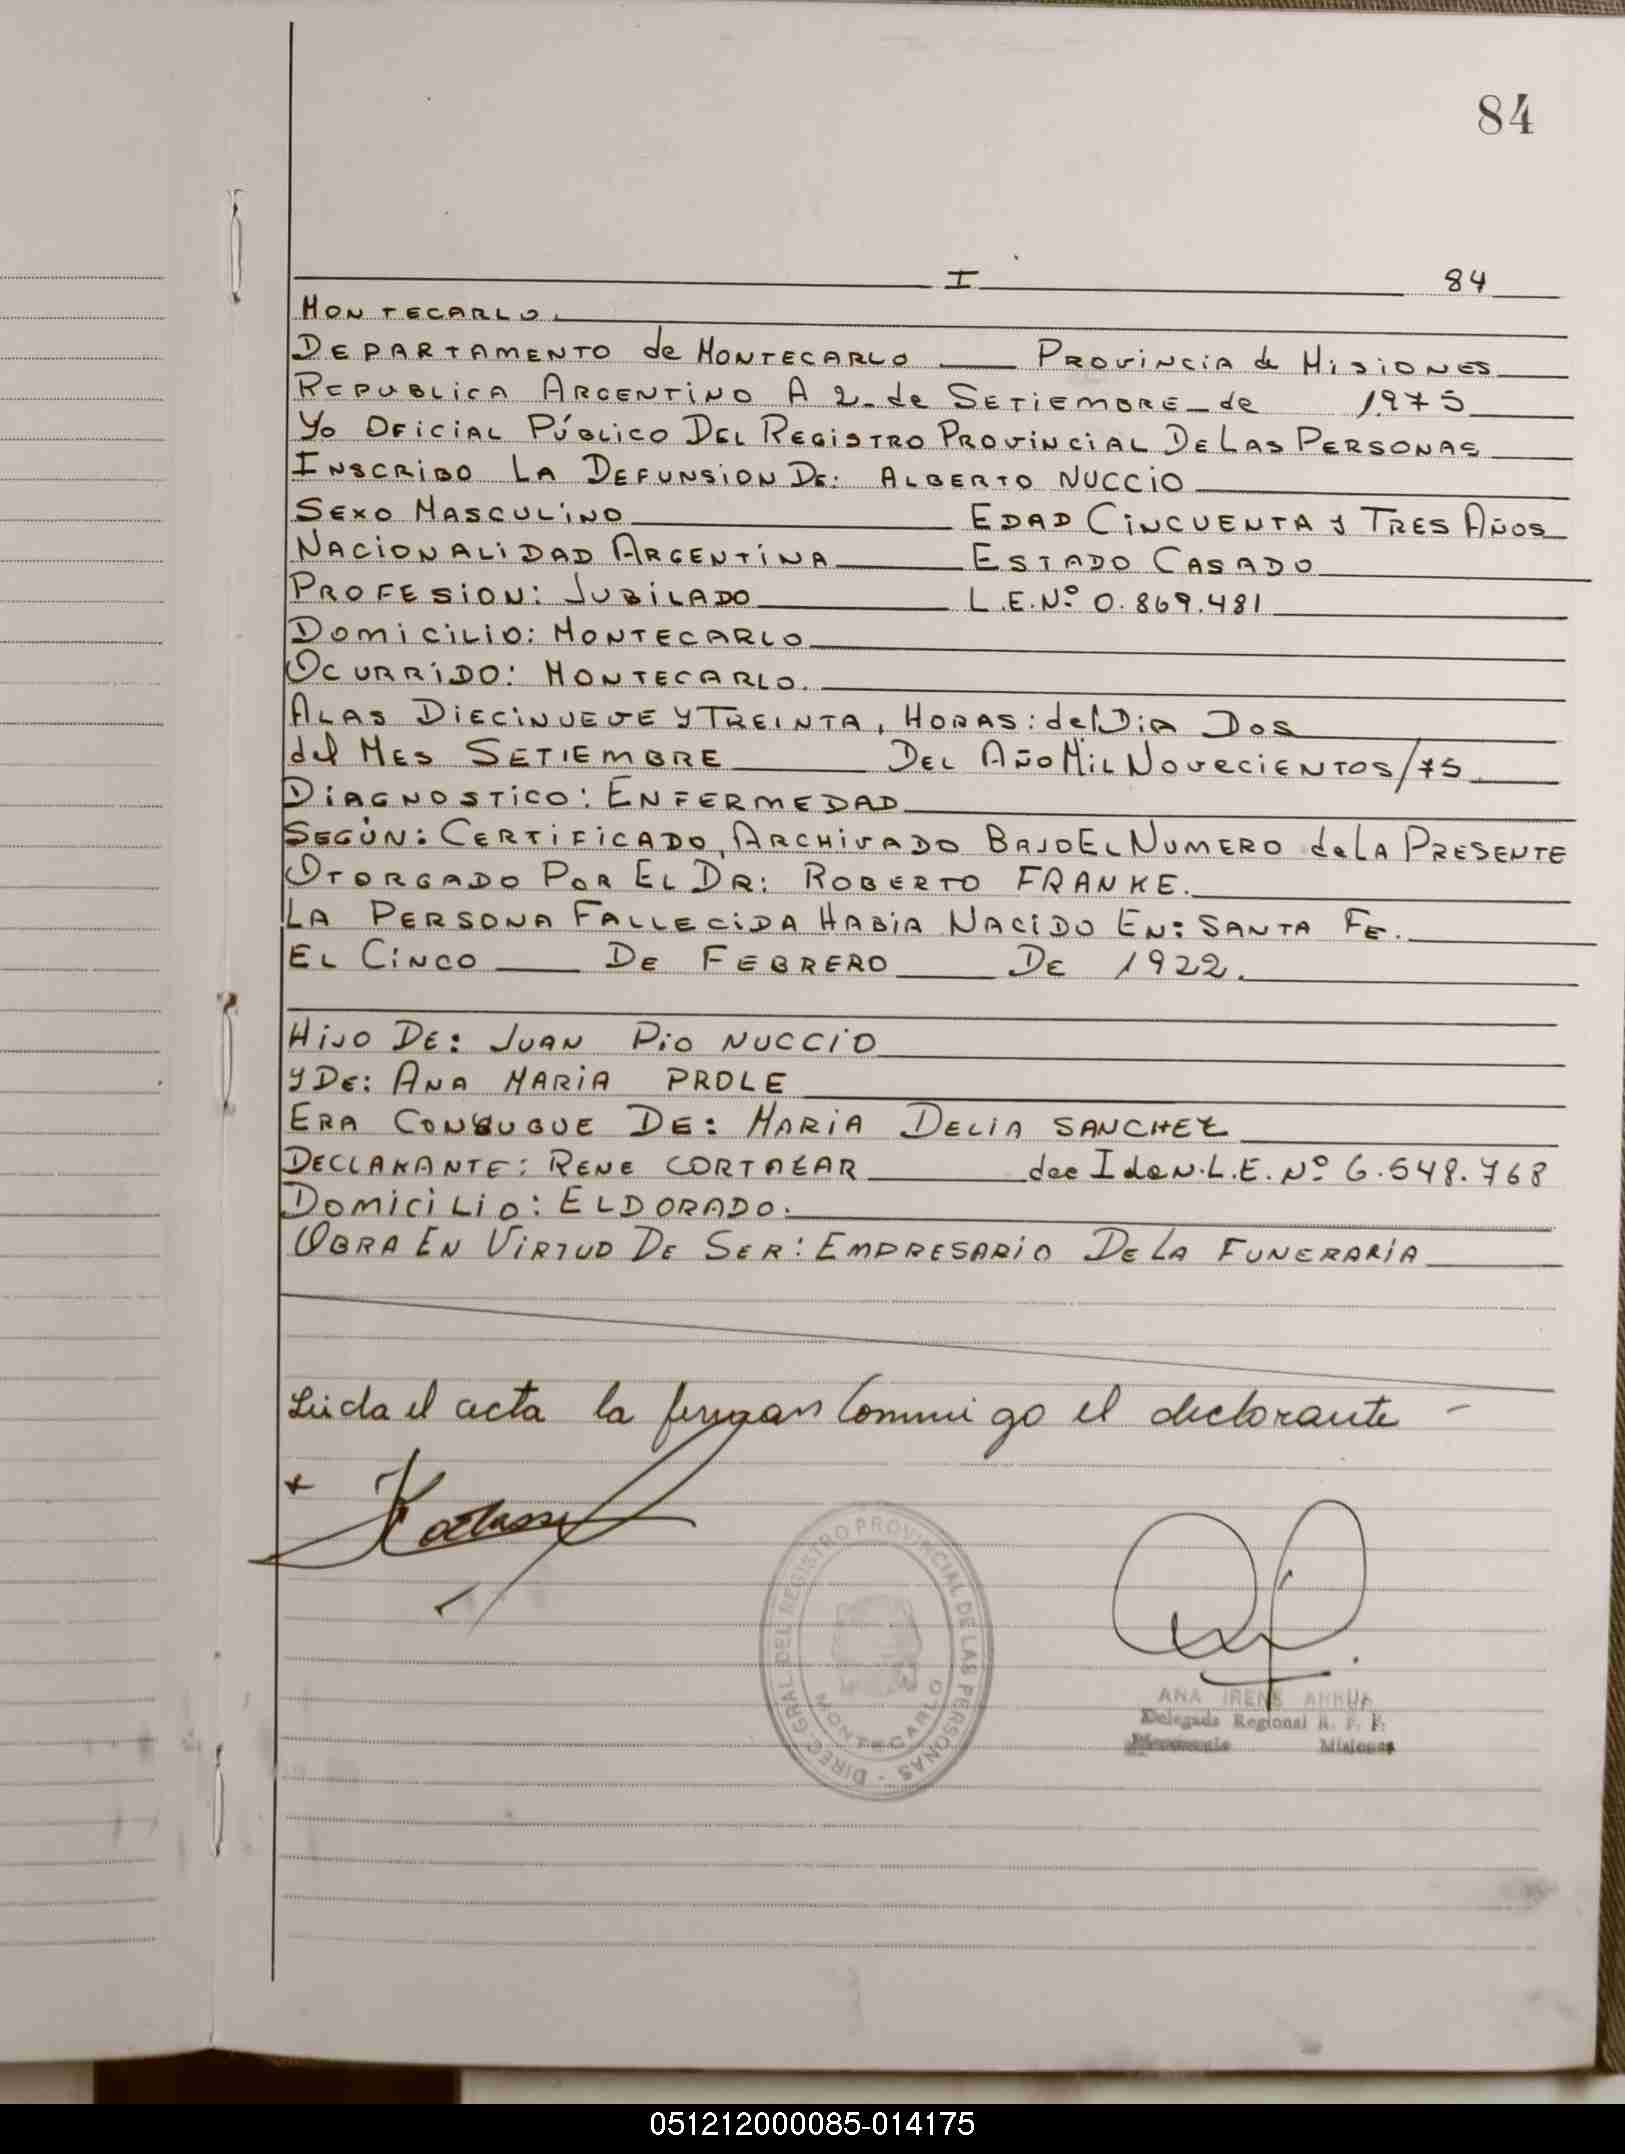 84
I 84
MONTECARLO.
DEPARTAMENTO de MONTECARLO PROVINCIA de MISIONES
REPUBLICA ARGENTINO A 2- de SETIEMBRE - de 1975
Yo OFICIAL PÚBLICO DEL REGISTRO PROVINCIAL DE LAS PERSONAS
INSCRIBO LA DEFUNSION DE: ALBERTO NUCCIO
SEXO MASCULINO EDAD CINCUENTA y TRES AÑOS
NACIONALIDAD ARGENTINA ESTADO CASADO
PROFESION: JUBILADO L.E. Nº 0.869.481
DOMICILIO: MONTECARLO
OCURRIDO: MONTECARLO.
A LAS DIECINUEVE Y TREINTA, HORAS: del DIA DOS
del MES SETIEMBRE DEL AÑO MIL NOVECIENTOS/75
DIAGNOSTICO: ENFERMEDAD
SEGÚN: CERTIFICADO, ARCHIVADO BAJO EL NUMERO de LA PRESENTE
OTORGADO POR EL DR: ROBERTO FRANKE.
LA PERSONA FALLECIDA HABIA NACIDO EN: SANTA FE.
EL CINCO DE FEBRERO DE 1922.
HIJO DE: JUAN PIO NUCCIO
Y DE: ANA MARIA PROLE
ERA CONYUGUE DE: MARIA DELIA SANCHEZ
DECLARANTE: RENE CORTAZAR doc Iden. L.E. Nº 6.548.768
DOMICILIO: ELDORADO.
OBRA EN VIRTUD DE SER: EMPRESARIO DE LA FUNERARIA
Leida el acta la firman conmigo el declarante -
DIREC. GRAL. DEL REGISTRO PROVINCIAL DE LAS PERSONAS -
MONTECARLO
ANA IRENE
Delegada Regional R. P. P.
Misiones
051212000085-014175